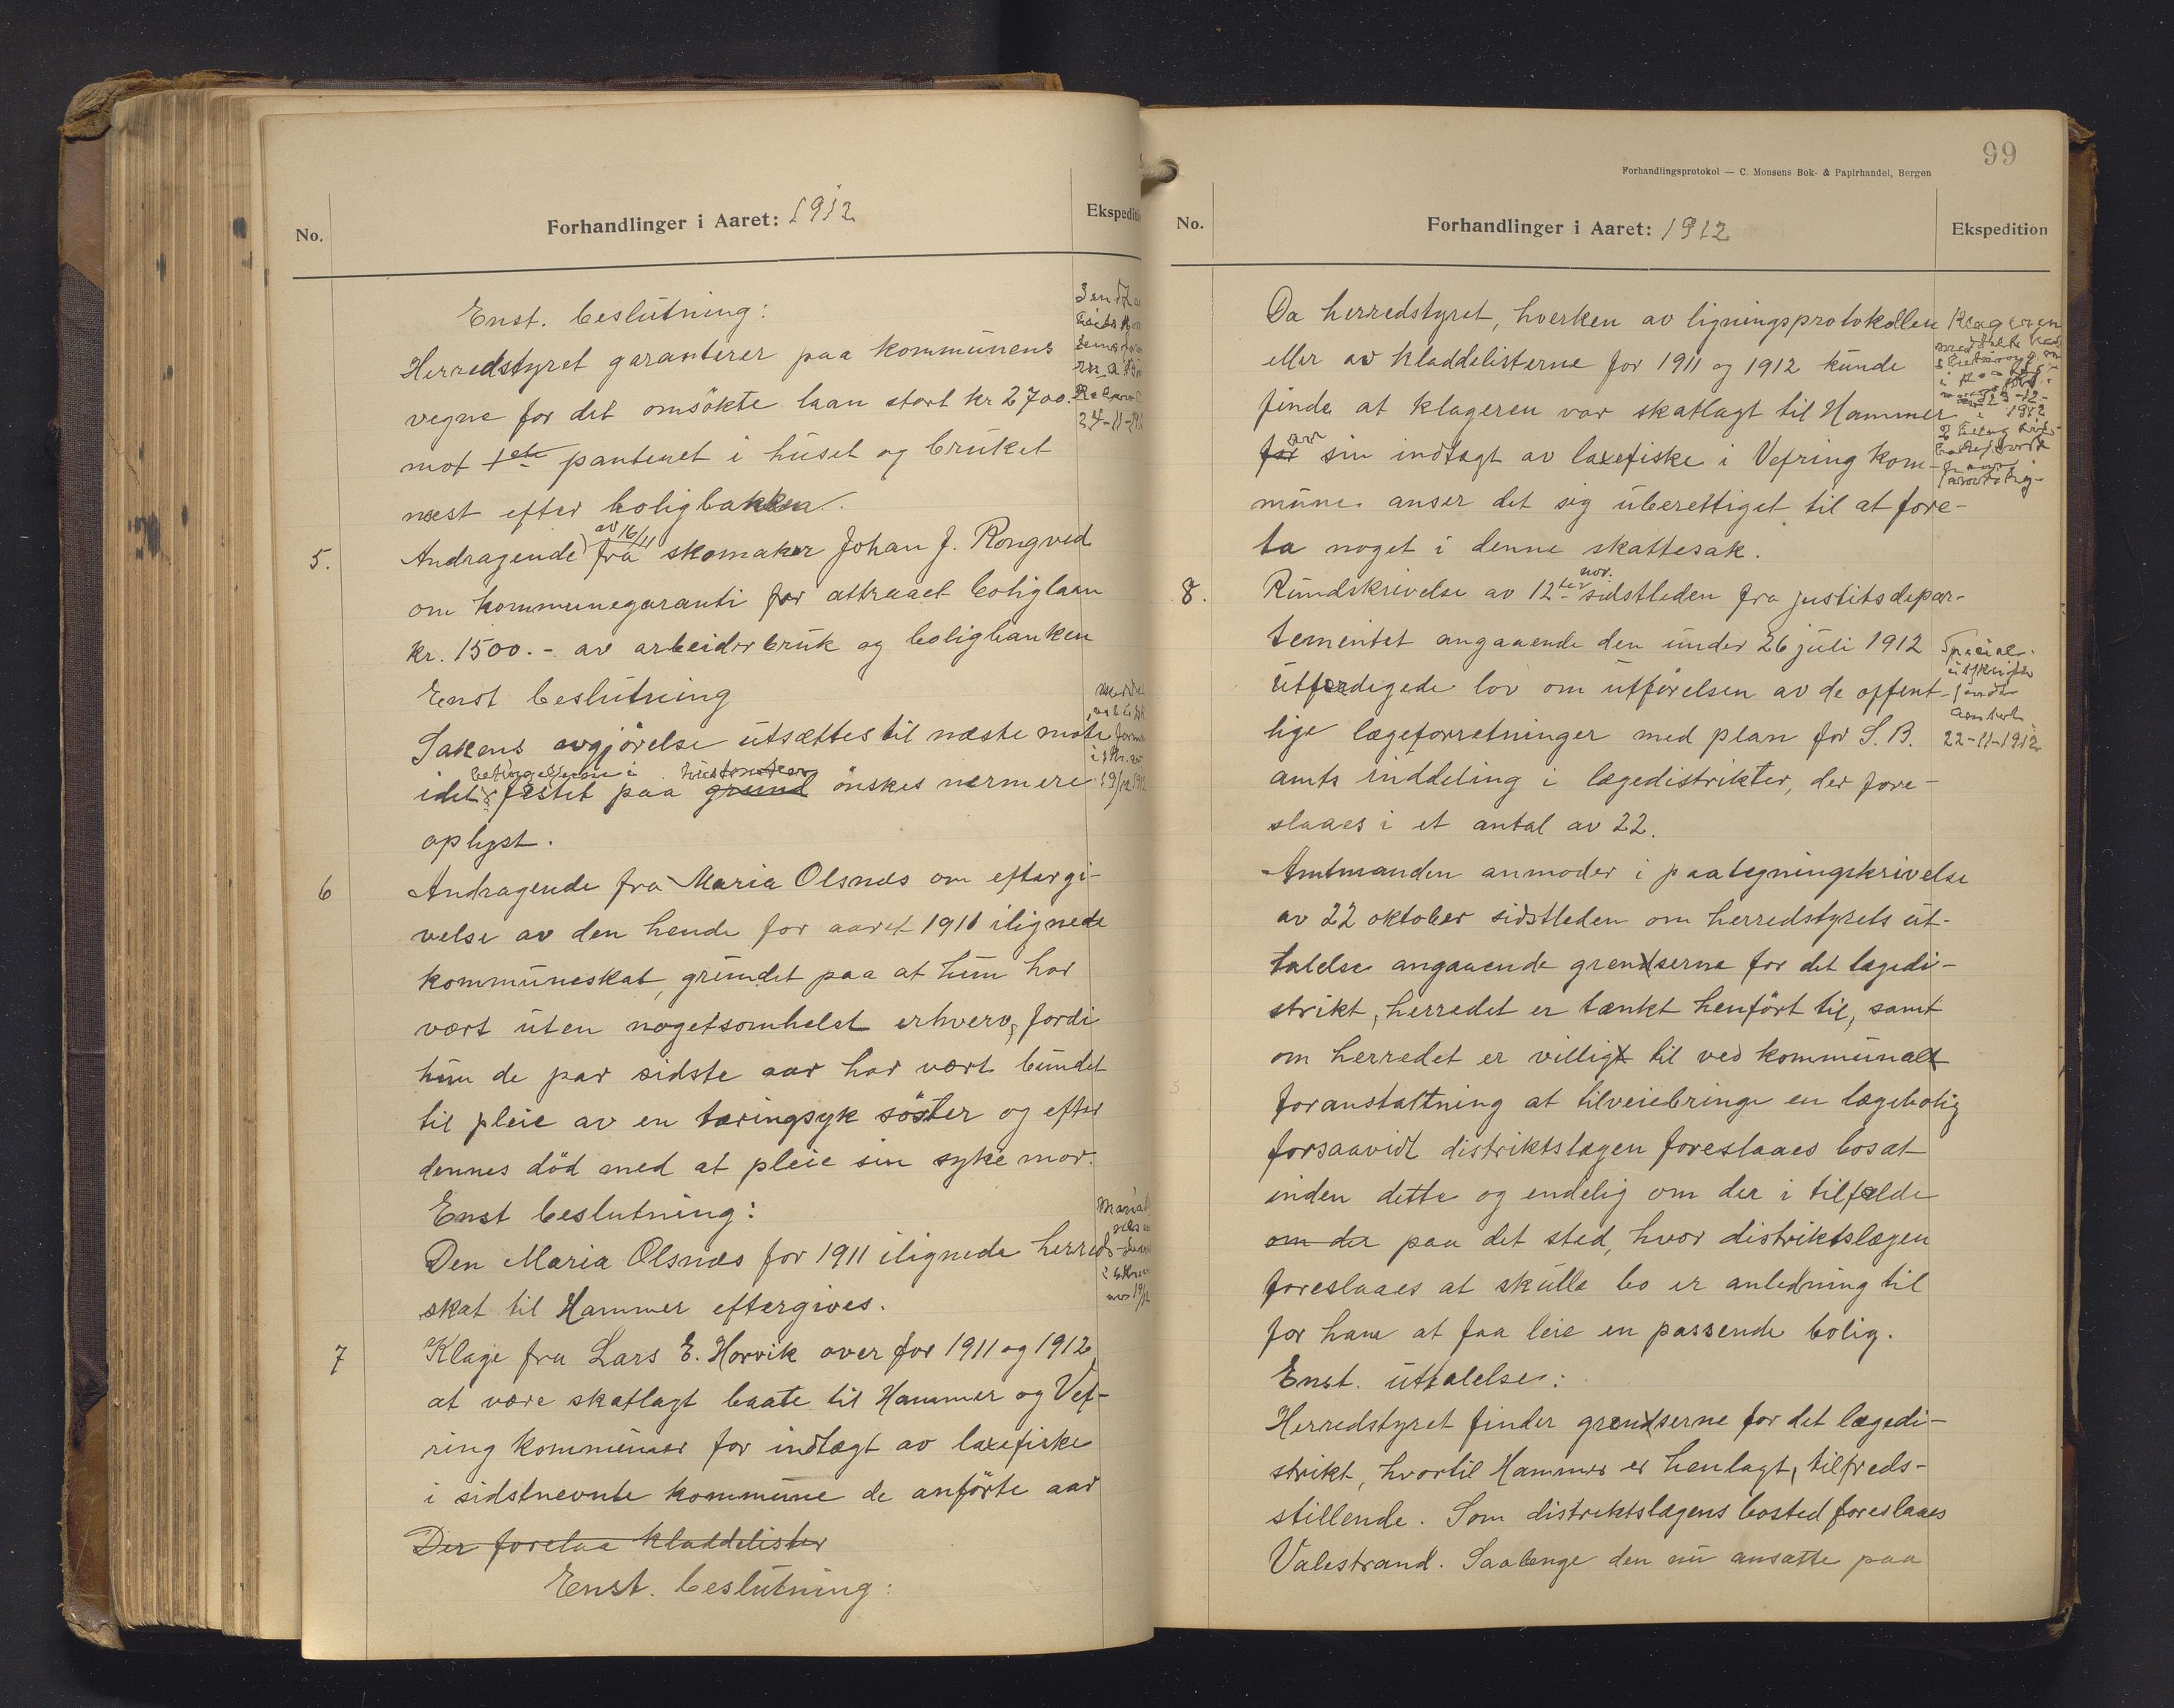 No.
Forhandlinger i Aaret: 1912
Enst. beslutning:
Herredstyret garanterer paa kommunens
vegne for det omsökte laan stort kr 2700.
mot 1ste panteret i huset og bruket
næst efter boligbanken.
24-11-
5.
av 16/11
Andragende fra skomaker Johan J. Rongved
om kommunegaranti for attraaet boliglaan
kr. 1500.- av arbeiderbruk og boligbanken
Enst beslutning
Sakens avgjörelse utsættes til næste möte
betingelserne i
idet festet paa grund önskes nærmere
oplyst.
6
Andragende fra Maria Olsnæs om eftergi-
velse av den hende for aaret 1911 ilignede
kommuneskat, grundet paa at hun har
vært uten nogetsomhelst erhverv, fordi
hun de par sidste aar har vært bundet
til pleie av en tæringsyk söster og efter
dennes död med at pleie sin syke mor.
Enst beslutning:
Den Maria Olsnæs for 1911 ilignede herreds-
skat til Hammer eftergives.
7
Klage fra Lars E. Horvik over for 1911 og 1912
at være skatlagt baate til Hammer og Vef-
ring kommuner for indtægt av laxefiske
i sidstnevnte kommune de anförte aar
Der forelaa kladdelister
Enst. beslutning:
99
Forhandlingsprotokol — C. Monsens Bok- & Papirhandel, Bergen
No.
Forhandlinger i Aaret: 1912
Ekspedition
Da herredstyret, hverken av ligningsprotokollen
eller av kladdelisterne for 1911 og 1912 kunde
finde at klageren var skatlagt til Hammer
for av sin indtægt av laxefiske i Vefring kom-
mune anser det sig uberettiget til at fore-
ta noget i denne skattesak.
Klageren
1912
8.
nov.
Rundskrivelse av 12ter sidstleden fra justitsdepar-
tementet angaaende den under 26 juli 1912
utferdigede lov om utförelsen av de offent-
lige lægeforretninger med plan for S. B.
amts inddeling i lægedistrikter, der fore-
slaaes i et antal av 22.
Special-
utskrift
sendt
amtet
22-11-1912
Amtmanden anmoder i paategningskrivelse
av 22 oktober sidstleden om herredstyrets ut-
talelse angaaende grendserne for det lægedi-
strikt, herredet er tænkt henfört til, samt
om herredet er villigt til ved kommunalt
foranstaltning at tilveiebringe en lægebolig
forsaavidt distriktslægen foreslaaes bosat
inden dette og endelig om der i tilfælde
om der paa det sted, hvor distriktslægen
foreslaaes at skulle bo er anledning til
for ham at faa leie en passende bolig.
Enst. uttalelse:
Herredstyret finder grendserne for det lægedi-
strikt, hvortil Hammer er henlagt, tilfreds-
stillende. Som distriktslægens bosted foreslaaes
Valestrand. Saalænge den nu ansatte paa